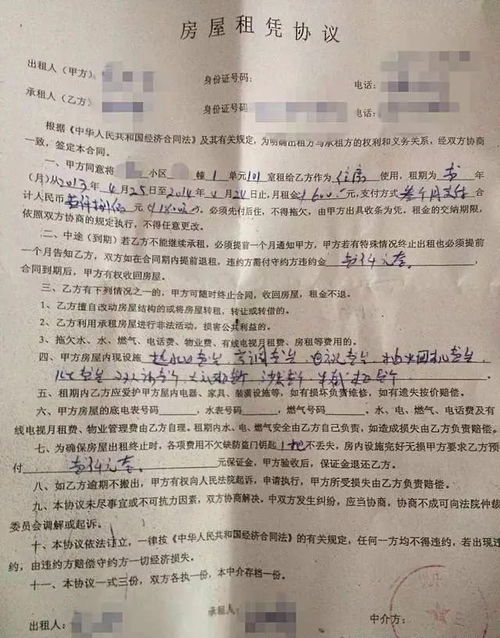 房屋租凭协议
出租人（甲方）
身份证号码：
电话：
承租人（乙方）
身份证号码
电话：
根据《中华人民共和国经济合同法》及其有关规定，为明确出租方与承租方的权利和义务关系，经双方协商
一致，签定本合同。
一、甲方同意将 小区 幢1单元101室租给乙方作住房使用，租期为壹年
（月）从2013年4月25日至2014年4月24日止，月租金1600元，支付方式叁个月支付合
计人民币 必须先付后住，不得拖欠，由甲方出具收条为凭。租金的交纳期限，
依照双方协商的规定执行，不得任意更改。
二、中途（到期）若乙方不能继续承租，必须提前一个月通知甲方，甲方若有特殊情况终止出租也必须提前
一个月告知乙方，双方如在合同期内提前退租，违约方需付守约方违约金壹仟元整，
合同到期后，甲方有权收回房屋。
三、乙方有下列情况之一的，甲方可随时终止合同，收回房屋，租金不退。
1、乙方擅自改动房屋结构的或将房屋转租，转让或转借的。
2、乙方利用承租房屋进行非法活动，损害公共利益的。
3、拖欠水、水、燃气、电话费、物业费、有线电视月租费、房租等费用的。
四、甲方房屋内现设施
五、租期内乙方应受护甲方屋内电器、家具、装潢设施等，如有损坏负责修偿，如有遗失按价赔偿。
六、甲方房屋的底电表号码 水表号码 燃气号码 水、电、燃气、电话费及有
线电视月租费、物业管理费由乙方自理。租期内水、电、燃气安全由乙方自己负责，如造成损失由乙方负责赔偿。
七、为确保房屋出租终止时，各项费用不欠缺防盗门钥匙1把不丢失，房内设施完好无损甲方要求乙方预
付壹仟元整元保证金，甲方验收后，保证金退还乙方。
八、如乙方逾期不搬出，甲方有权向人民法院起诉，申请执行，甲方所受损失由乙方负责赔偿。
九、本协议未尽事宜或不可抗力因素，双方协商解决。中双方发生纠纷，应当协商，协商不成可向法院仲裁
委员会调解或起诉。
十、本协议依法订立，一律按《中华人民共和国经济合同法》的有关规定，任何一方均不得违约，若出现违
约，由违约方赔偿守约方一切经济损失。
十一、本协议一式三份，双方各执一份，本中介存档一份。
出租人：
承租人：
中介方：